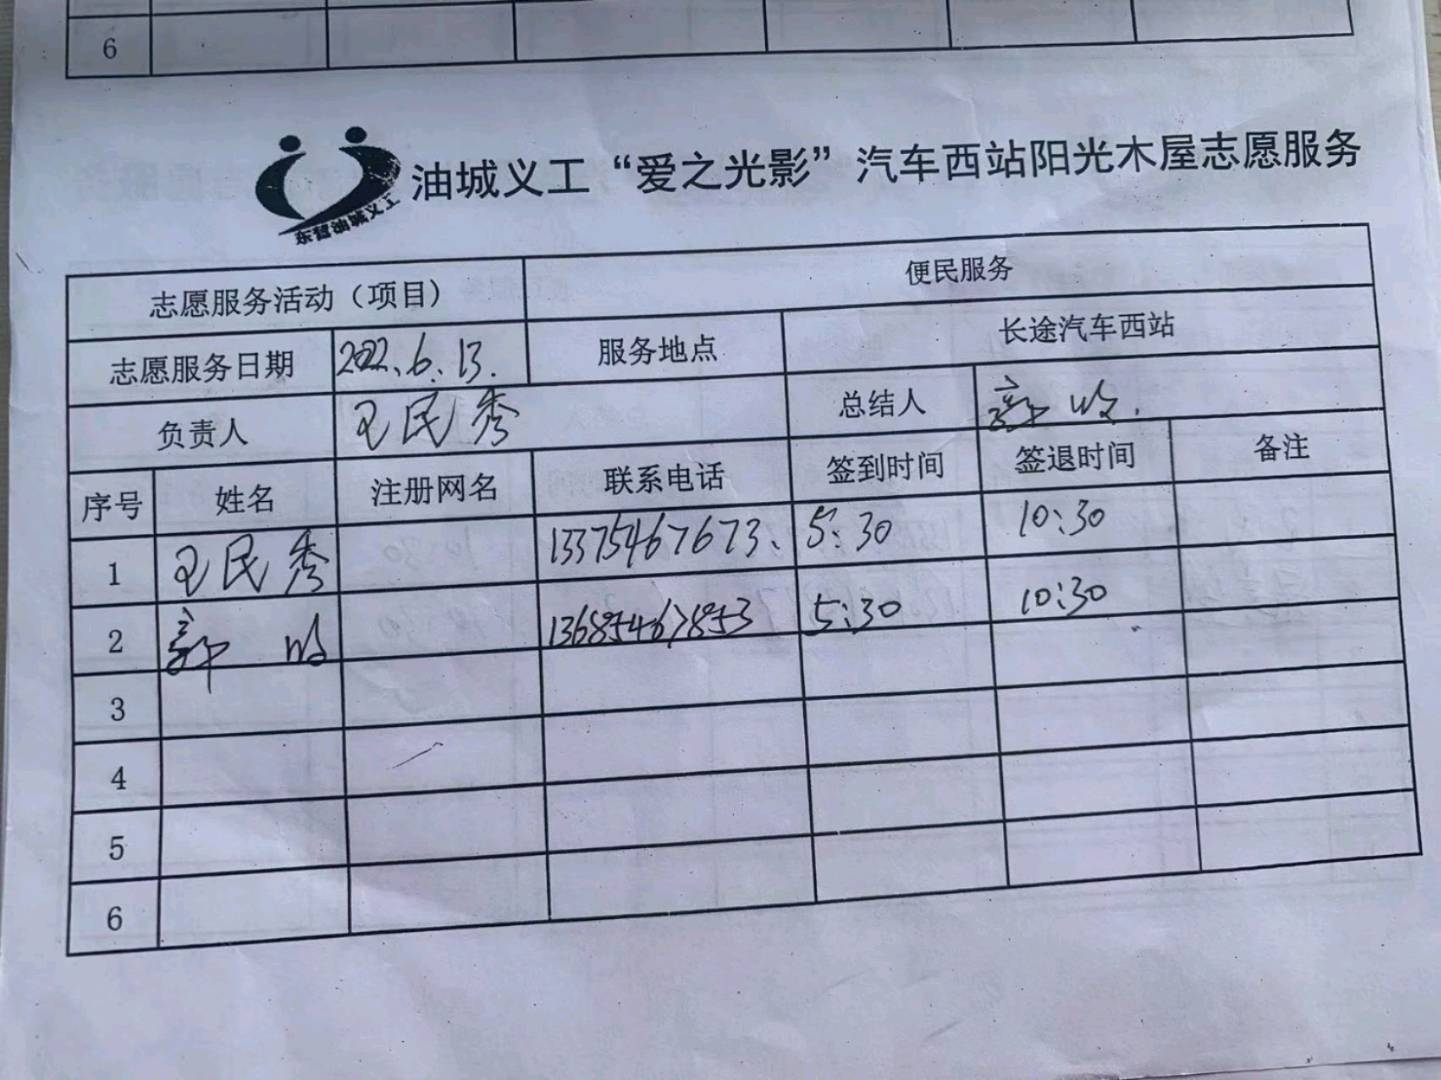 6
东营油城义工
油城义工“爱之光影”汽车西站阳光木屋志愿服务
志愿服务活动（项目） 便民服务
志愿服务日期 2022.6.13. 服务地点 长途汽车西站
负责人 王民秀 总结人
序号 姓名 注册网名 联系电话 签到时间 签退时间 备注
1 王民秀 13375467673. 5:30 10:30
2 13685467853 5:30 10:30
3
4
5
6